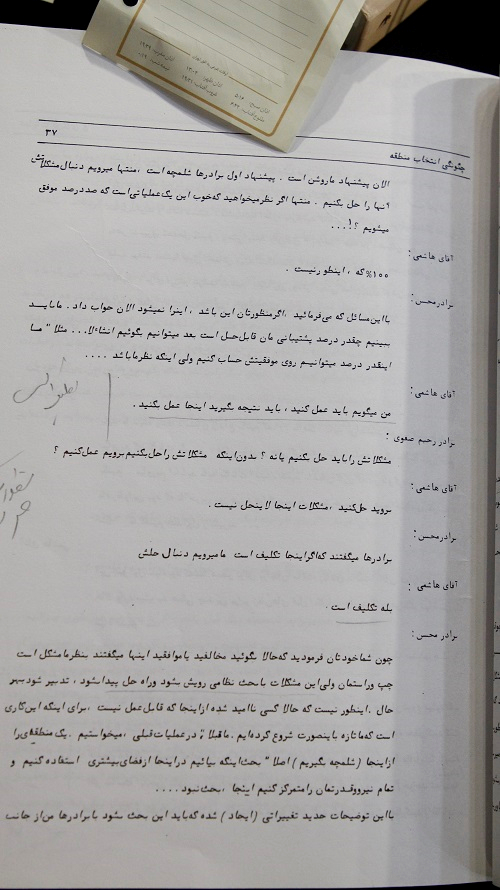 چگونگی انتخاب منطقه
۳۷
الان پیشنهاد ماروشن است . پیشنهاد اول برادرها شلمچه است ، منتها میرویم دنبال مشکلاتش
آنها را حل بکنیم . منتها اگر نظر میخواهید که خوب این یک عملیاتی است که صددرصد موفق
میشویم ؟! ...
آقای هاشمی :
۱۰۰% که ، اینطور نیست .
برادر محسن :
با این مسائل که می‌فرمائید ، اگر منظورتان این باشد ، اینرا نمیشود الان جواب داد . ما باید
ببینیم چقدر درصد پشتیبانی مان قابل حل است بعد میتوانیم بگوئیم انشاءالله ... مثلا" ما
اینقدر درصد میتوانیم روی موفقیتش حساب کنیم ولی اینکه نظر ما باشد ....
آقای هاشمی :
من میگویم باید عمل کنید ، باید نتیجه بگیرید اینجا عمل بکنید .
برادر رحیم صفوی :
مشکلاتش را باید حل بکنیم یا نه ؟ بدون اینکه مشکلاتش را حل بکنیم برویم عمل کنیم ؟
آقای هاشمی :
بروید حل کنید ، مشکلات اینجا لاینحل نیست .
برادر محسن :
برادرها میگفتند که اگر اینجا تکلیف است ما میرویم دنبال حلش
آقای هاشمی :
بله تکلیف است .
برادر محسن :
چون شما خودتان فرمودید که حالا بگوئید مخالفید یا موافقید اینها میگفتند بنظر ما مشکل است
چپ و راستمان ولی این مشکلات با بحث نظامی رویش بشود و راه حل پیدا بشود ، تدبیر شود بهر
حال . اینطور نیست که حالا کسی ناامید شده از اینجا که قابل عمل نیست ، برای اینکه این کاری
است که ما تازه باینصورت شروع کرده‌ایم . ما قبلا" در عملیات قبلی ، میخواستیم . یک منطقه‌ای را
از اینجا ( شلمچه بگیریم ) اصلا" بحث اینکه بیائیم در اینجا از فضای بیشتری استفاده کنیم و
تمام نیرو و قدرتمان را متمرکز کنیم اینجا ، بحث نبود ....
با این توضیحات جدید تغییراتی ( ایجاد ) شده که باید این بحث بشود با برادرها من از جانب